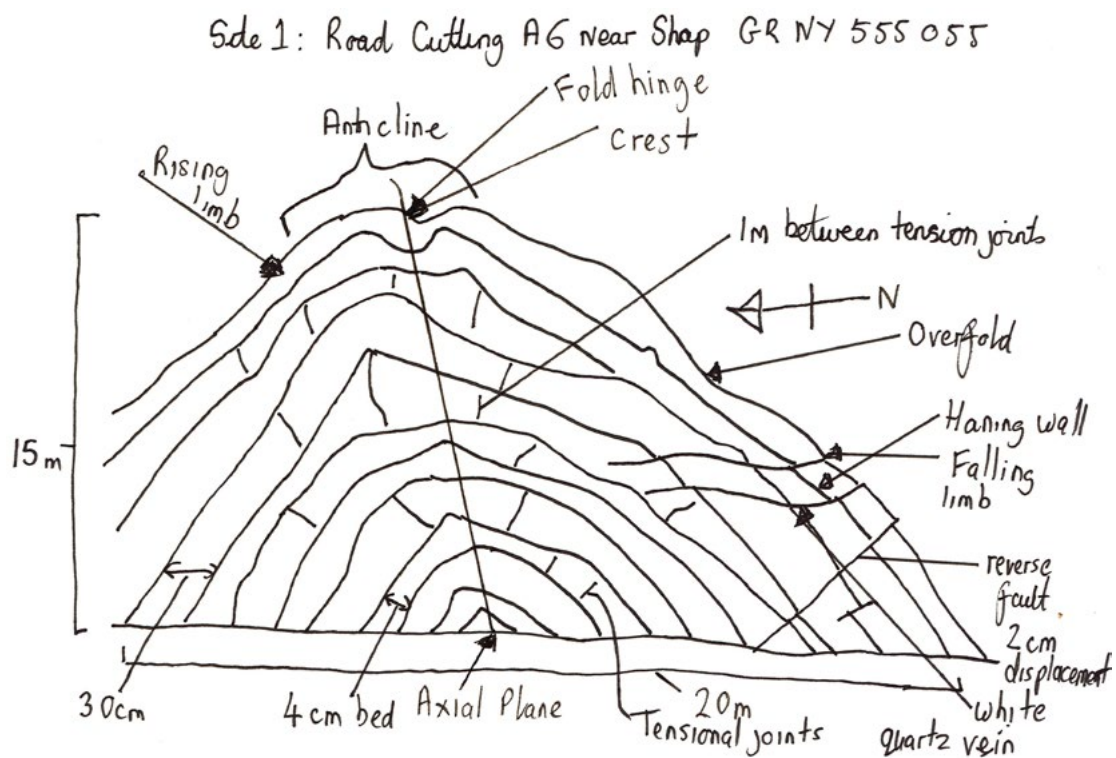 Site 1: Road Cutting A6 near Shap GR NY 555 055
Fold hinge
Anticline
Crest
Rising
limb
1m between tension joints
N
Overfold
Haning wall
15m
Falling
limb
reverse
fault
2cm
displacement
30cm
4cm bed
Axial Plane
20m
Tensional joints
white
quartz vein